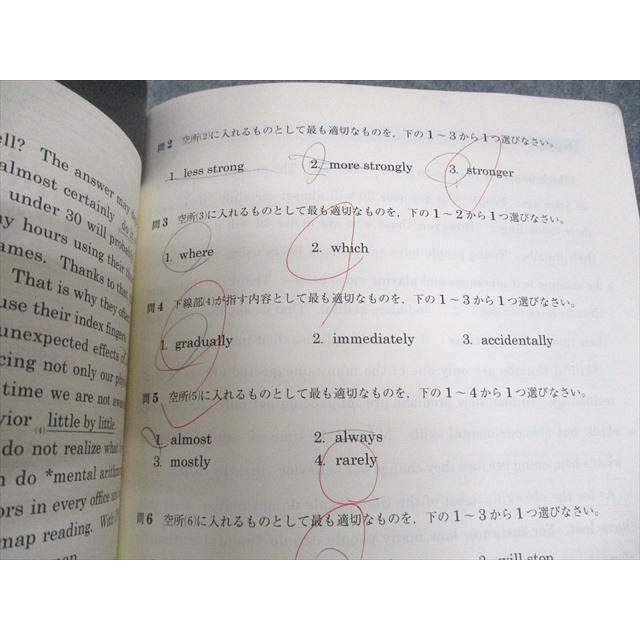 ell? The answer may
almost certainly do it
under 30 will probab
hours using their
ames. Thanks to
That is why they
use their index fingers.
unexpected effects of
cing not only our
time we are not aware
vior (4) little by little.
do not realize what
do *mental arithm
ors in every office and
map reading. With
問2 空所(2)に入れるものとして最も適切なものを，下の1～3から1つ選びなさい。
1. less strong 2. more strongly 3. stronger
問3 空所(3)に入れるものとして最も適切なものを，下の1～2から1つ選びなさい。
1. where 2. which
問4 下線部(4)が指す内容として最も適切なものを，下の1～3から1つ選びなさい。
1. gradually 2. immediately 3. accidentally
問5 空所(5)に入れるものとして最も適切なものを，下の1～4から1つ選びなさい。
1. almost 2. always
3. mostly 4. rarely
問6 空所(6)に入れるものとして最も適切なものを，下の1～3から1つ選びなさい。
will stop